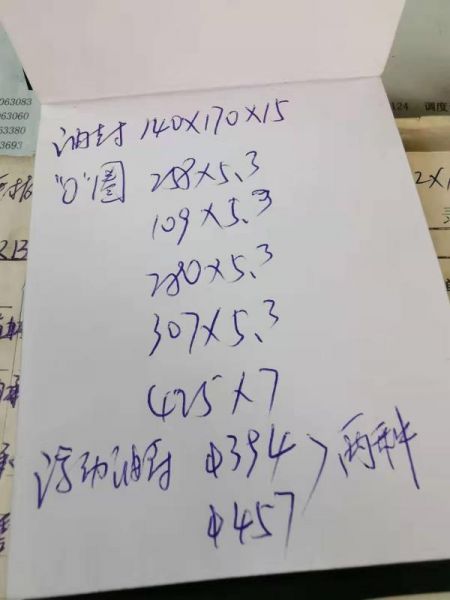 063083
063060
063380
3693
124 调度
油封 140×170×15
"O"圈 258×5.3
109×5.3
280×5.3
307×5.3
425×7
浮动油封 φ394 > 两种
φ457